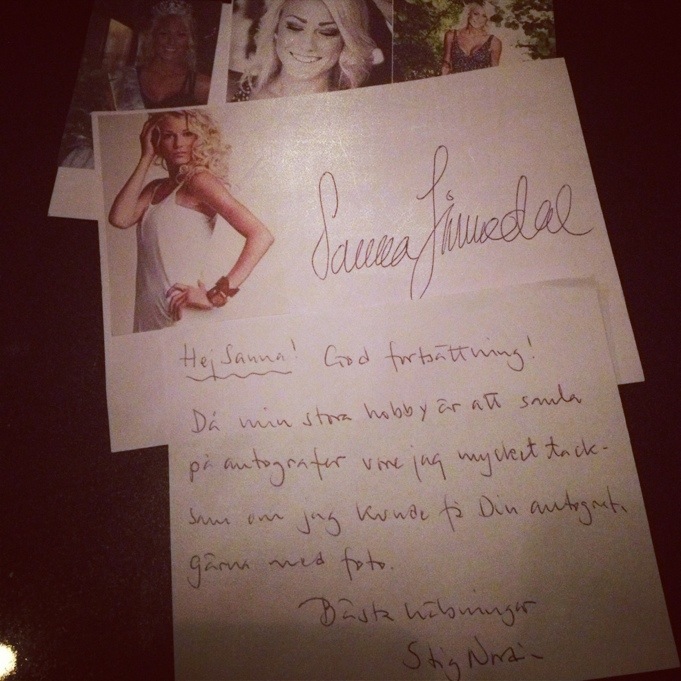 Sanna Jinnedal
Hej Sanna! God fortsättning!
Då min stora hobby är att samla
på autografer vore jag mycket tack-
sam om jag kunde få Din autograf,
gärna med foto.
Bästa hälsningar
Stig